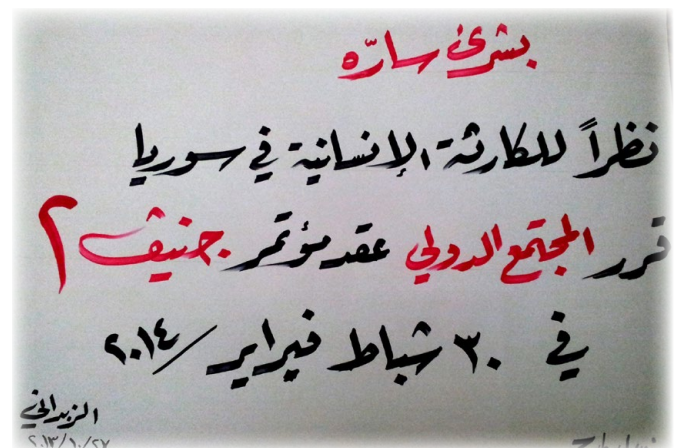 بشرى سارّه
نظراً للكارثة الإنسانية في سوريا
قرر المجتمع الدولي عقد مؤتمر جنيف ٢
في ٣٠ شباط فبراير / ٢٠١٤
الزبداني
٢٠١٣/١٠/٢٧